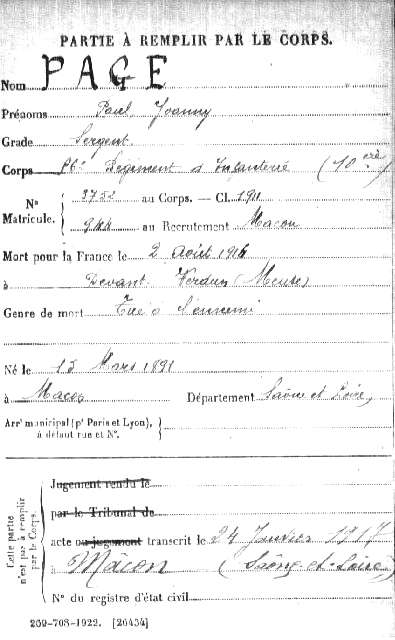 PARTIE À REMPLIR PAR LE CORPS.
Nom PAGE
Prénoms Paul Joanny
Grade Sergent
Corps Régiment d'Infanterie (10 ère)
N° Matricule. { 3752 au Corps. — Cl. 1911
944 au Recrutement Macon
Mort pour la France le 2 Août 1916
à Devant Verdun (Meuse)
Genre de mort Tué à l'ennemi
Né le 15 Mars 1891
à Macon Département Saône et Loire
Arr^t municipal (p^r Paris et Lyon),
à défaut rue et N°.
Cette partie n'est pas à remplir par le Corps.
Jugement rendu le
par le Tribunal de
acte ou jugement transcrit le 24 Janvier 1917
à Mâcon (Saône-et-Loire)
N° du registre d'état civil
269-708-1922. [20434]